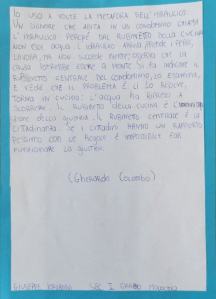 IO USO A VOLTE LA METAFORA DELL'IDRAULICO.
UN SIGNORE CHE ABITA IN UN CONDOMINIO CHIAMA
L'IDRAULICO PERCHÉ DAL RUBINETTO DELLA CUCINA
NON ESCE ACQUA. L'IDRAULICO ARRIVA, PRENDE I FERRI,
LAVORA, MA NON SUCCEDE NIENTE. SOSPETTA CHE LA
CAUSA POTREBBE ESSERE A MONTE. SI FA INDICARE IL
RUBINETTO CENTRALE DEL CONDOMINIO, LO ESAMINA,
E VEDE CHE IL PROBLEMA È LÌ. LO RISOLVE,
TORNA IN CUCINA: L'ACQUA HA RIPRESO A
SCORRERE. IL RUBINETTO DELLA CUCINA È L'AMMINISTRA
ZIONE DELLA GIUSTIZIA. IL RUBINETTO CENTRALE È LA
CITTADINANZA. SE I CITTADINI HANNO UN RAPPORTO
PESSIMO CON LE REGOLE È IMPOSSIBILE FAR
FUNZIONARE LA GIUSTIZIA.
(GHERARDO COLOMBO)
GIUSEPPE SEC. I GRADO